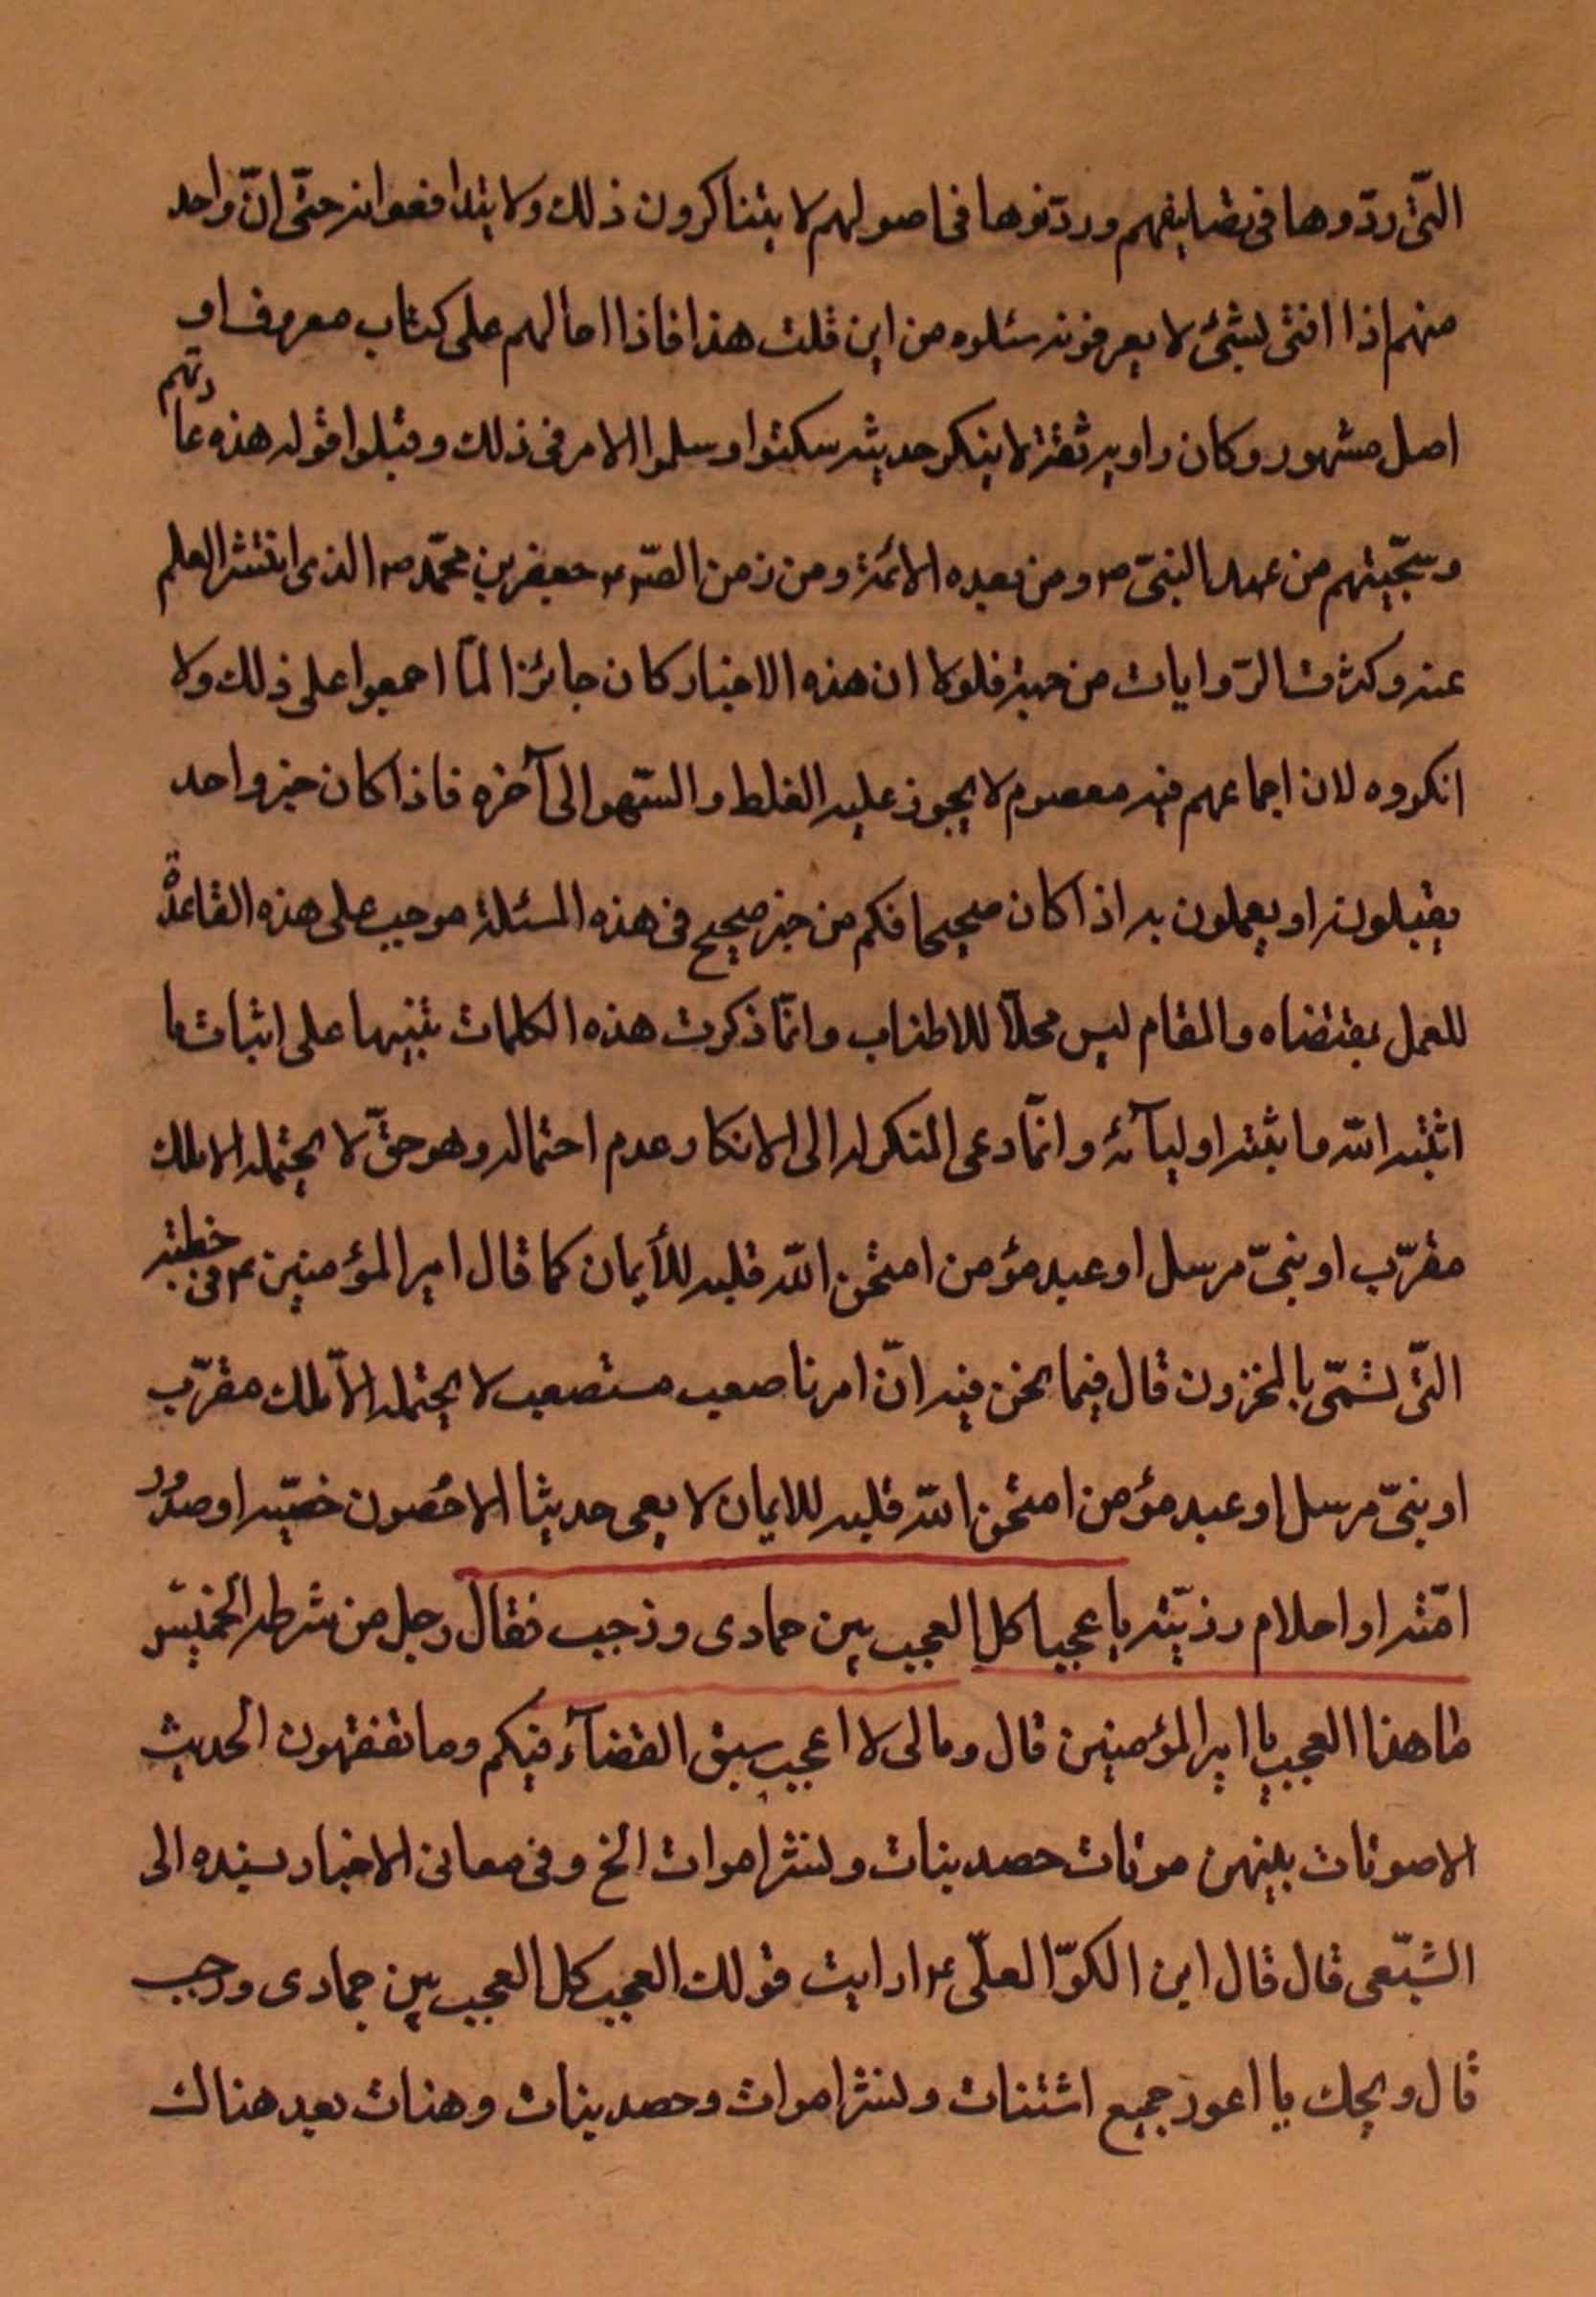 التّي ردّوها في تصانيفهم وردّنوها في اصولهم لا يتناكرون ذلك ولا يتدافعوانه حتّى انّ واحد
منهم اذا افتى بشئ لا يعرفونه سئلوه من اين قلت هذا فاذا احالهم على كتاب معروف او
اصل مشهور وكان راويه ثقة لا ينكر حديثه سكتوا وسلموا الامر في ذلك وقبلوا قوله هذه عادتهم
وسجّيتهم من عهد النبيّ ص ومن بعده الائمّة ومن زمن الصّ ع جعفر بن محمّد ع الذى انتشر العلم
عنه وكثرت الرّوايات من جهته فلولا ان هذه الاخبار كان جائزا لمّا اجمعوا على ذلك ولا
انكروه لان اجماعهم فيه معصوم لا يجوز عليه الغلط والسّهو الى آخره فاذا كان خبر واحد
يقبلونه او يعملون به اذا كان صحيحا فكم من خبر صحيح في هذه المسئلة موجب على هذه القاعدة
للعمل بمقتضاه والمقام ليس محلّا للاطناب وانّما ذكرت هذه الكلمات تنبيها على اثبات ما
اثبته اللّه ما بثته اوليآئه وانّما دعى المنكر له الى الانكار عدم احتماله وهو حقّ لا يحتمله الا ملك
مقرّب او نبيّ مرسل او عبد مؤمن امتحن اللّه قلبه للأيمان كما قال امير المؤمنين ع في خطبته
التّي تسمّى بالمخزون قال فيما نحن فيه انّ امرنا صعب مستصعب لا يحتمله الّا ملك مقرّب
او نبيّ مرسل او عبد مؤمن امتحن اللّه قلبه للايمان لا يعى حديثا الا حُصون خصّيه او صدور
امّته او احلام رزيّنه يا عجبا كل العجب بين جمادى ورجب فقال رجل من شرطه الخميس
ما هذا العجب يا امير المؤمنين قال ومالى لا اعجب سبق القضآء فيكم وما تفقهون الحديث
الا صوتات بينهن موتات حصد بنات ولنشر اموات الخ وفي معاني الاخبار بسنده الى
الشّبعى قال قال ابن الكوّا لعلّى ع ارايت قولك العجب كل العجب بين جمادى ورجب
قال ويحك يا اعور جميع اشتنات ولنشر اموات وحصد بنات وهنات بعد هناك